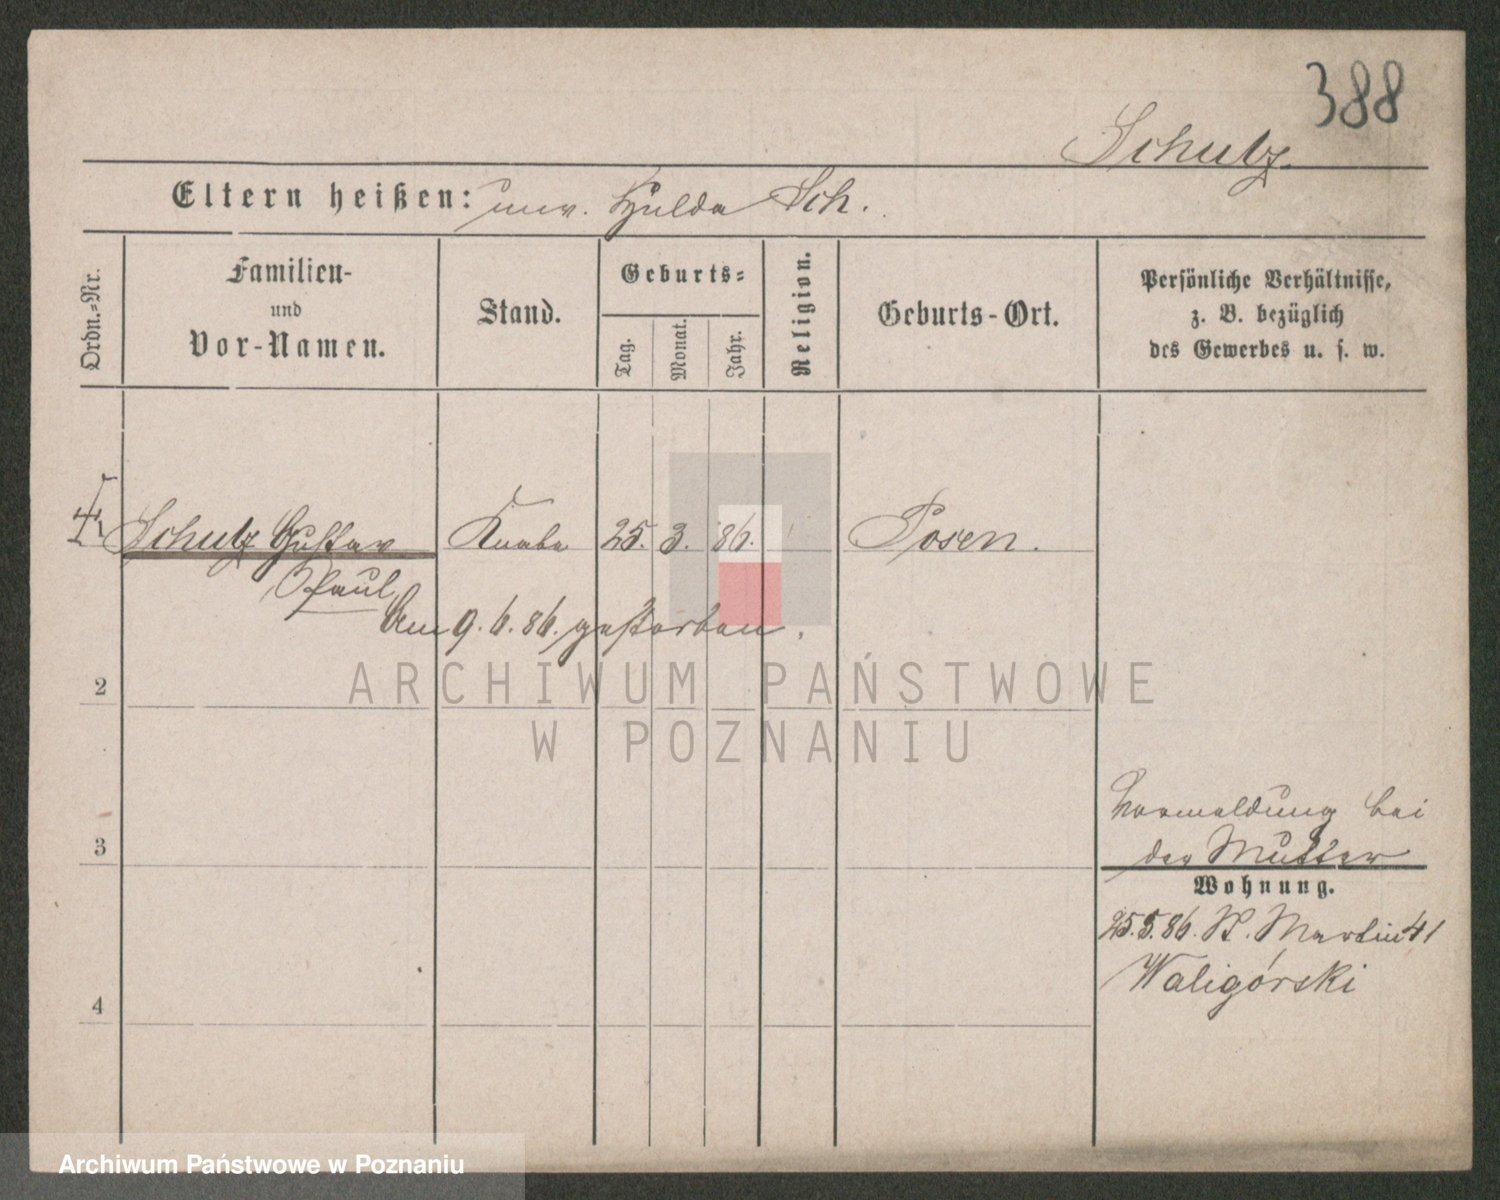 388
Schulz.
Eltern heißen: unv. Hulda Sch.
Ordn.-Nr.
Familien-
und
Vor-Namen.
Stand.
Geburts-
Tag.
Monat.
Jahr.
Religion.
Geburts-Ort.
Persönliche Verhältnisse,
z. B. bezüglich
des Gewerbes u. s. w.
Schulz Gustav Knabe 25. 3. 86. Posen.
Paul
Am 9. 6. 86. gestorben.
ARCHIWUM PAŃSTWOWE
W POZNANIU
2
3
4
bei
der Mutter
Wohnung.
25.5.86. St. Martin 41
Waligórski
Archiwum Państwowe w Poznaniu